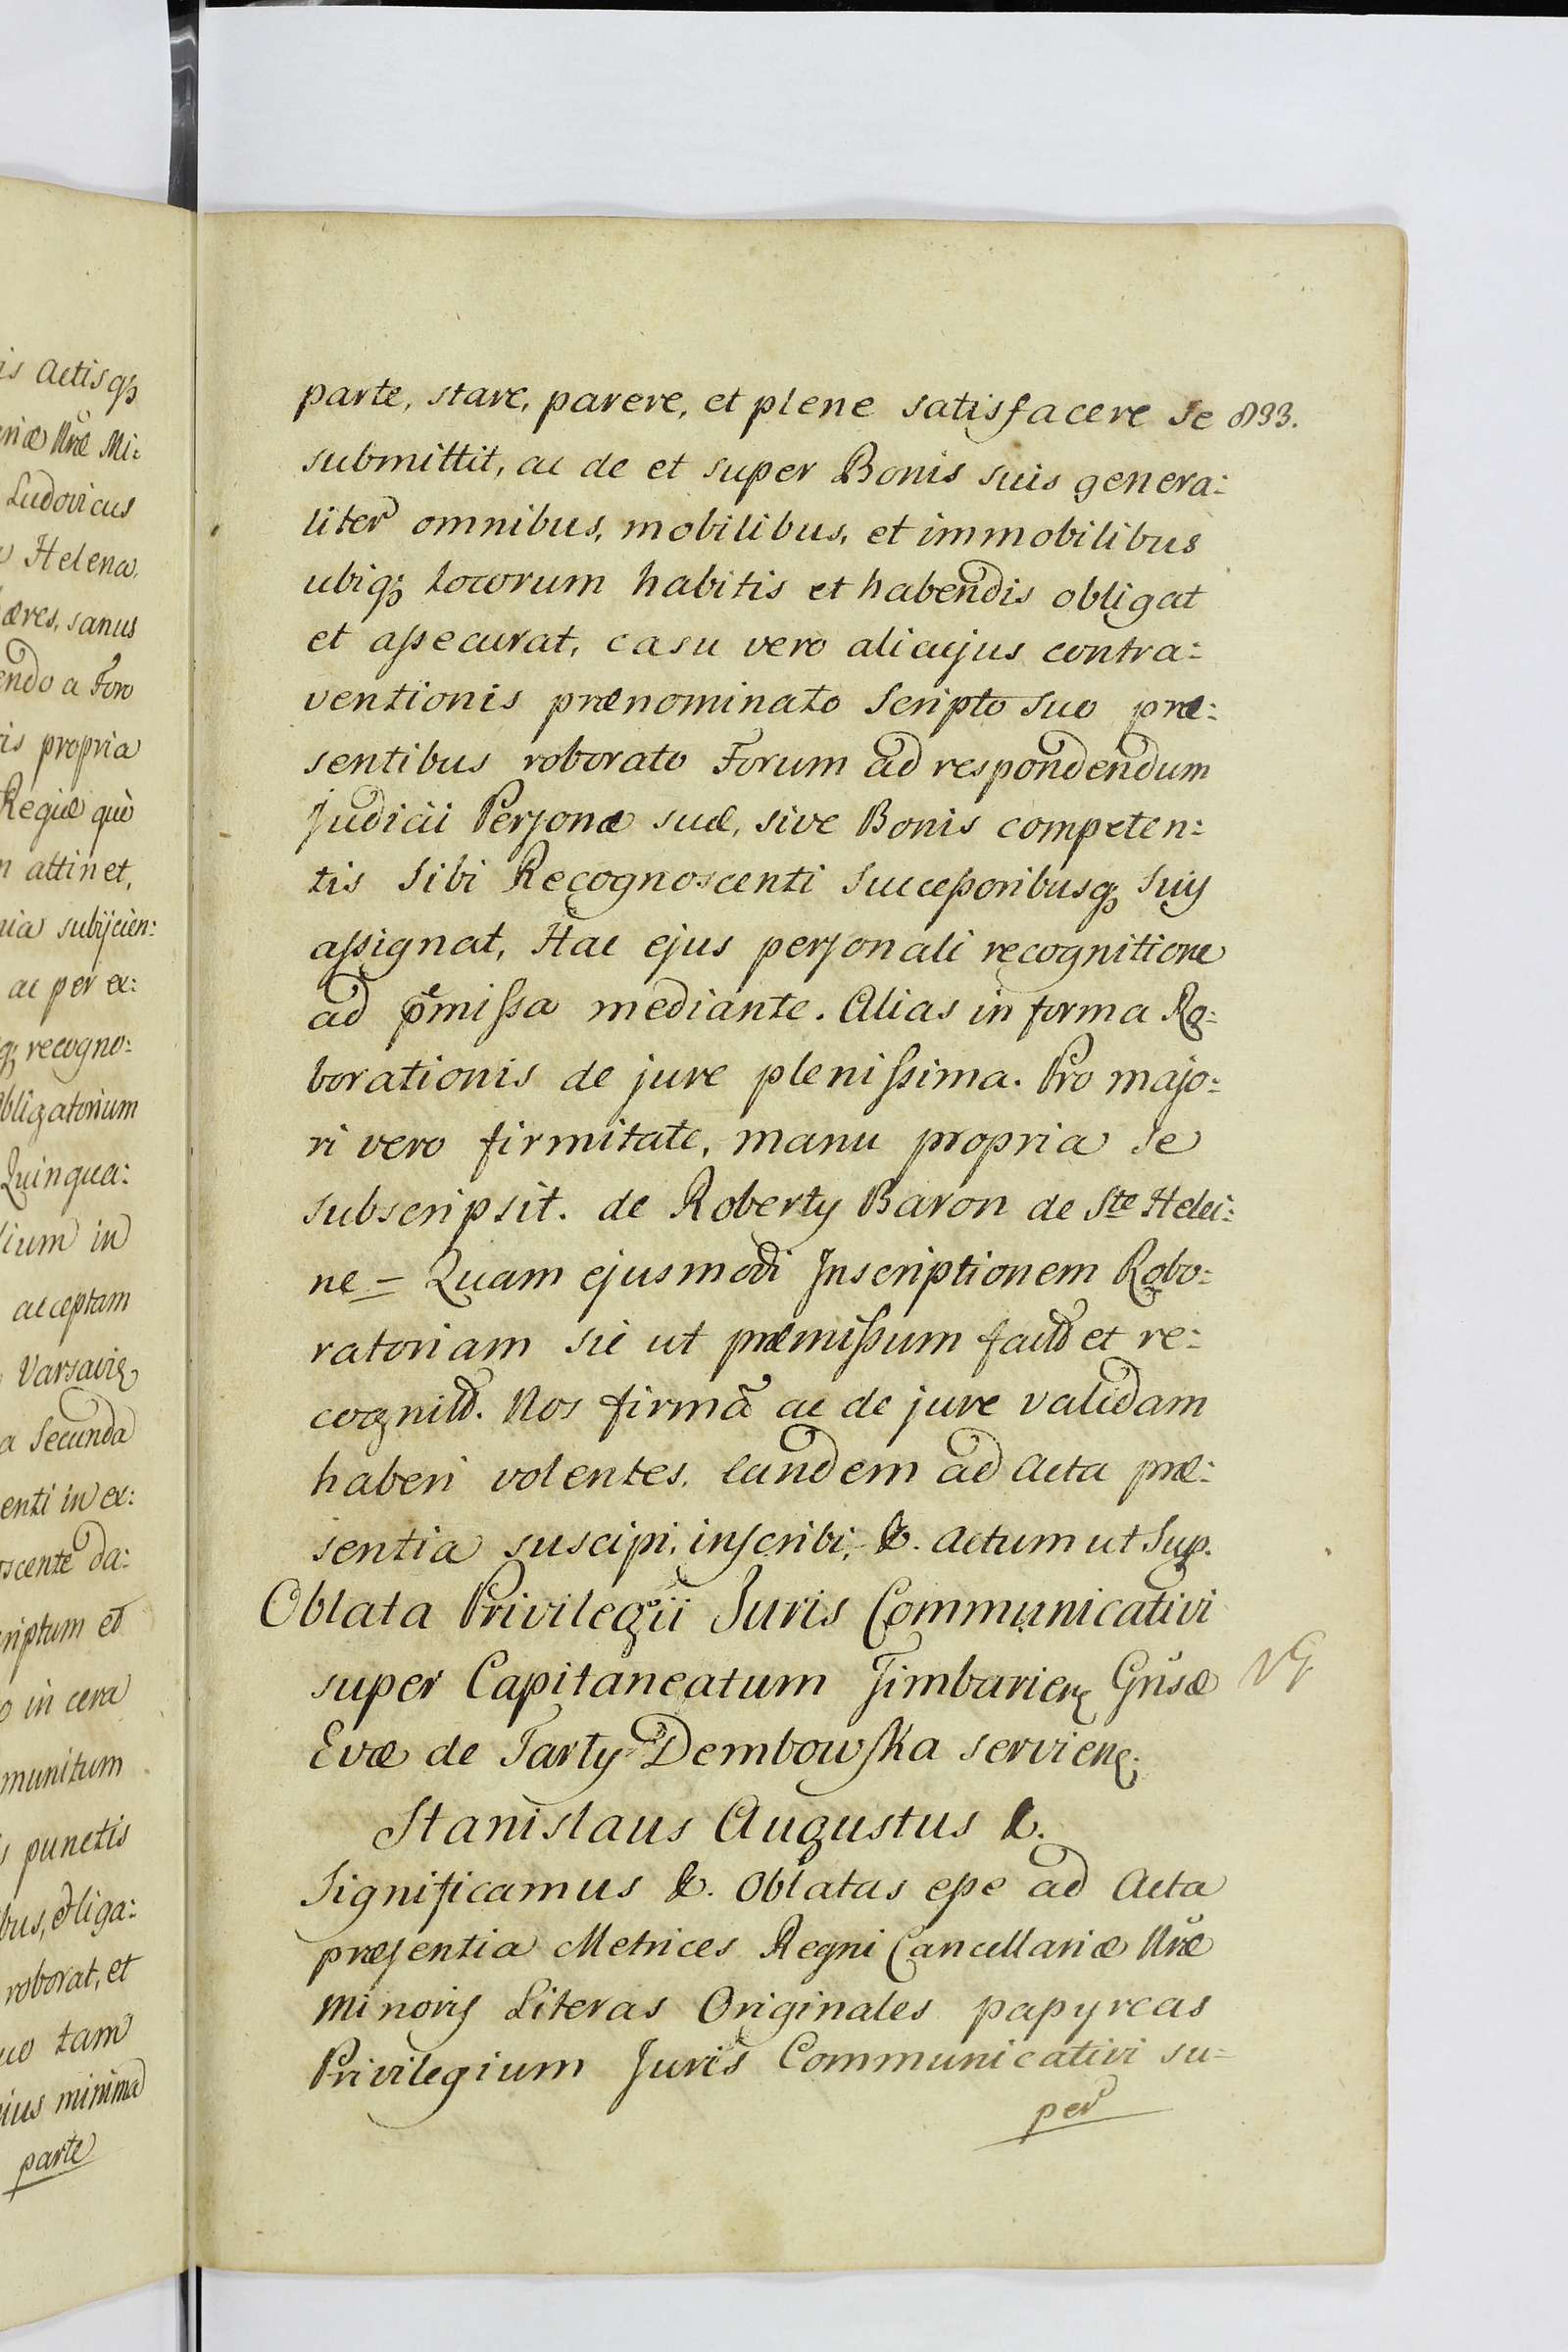 is Actisq;
niæ Nræ Mi:
Ludovicus
Helena,
æres, sanus
endo a Foro
is propria
Regiæ quò
attinet,
nia subijcien:
ac per ex:
q; recogno:
Obligatorium
Quinqua:
lium in
acceptam
Varsaviæ
a Secunda
enti in ex:
scente da:
riptum et
o in cera
munitum
punctis
bus, et liga:
roborat, et
uo tam
ius minima
parte
parte, stare, parere, et plene satisfacere Se 833.
submittit, ac de et super Bonis suis genera:
liter omnibus, mobilibus, et immobilibus
ubiq; locorum habitis et habendis obligat
et assecurat, casu vero alicujus contra:
ventionis prænominato Scripto Suo præ:
sentibus roborato Forum ad respondendum
Judicii Personæ suæ, sive Bonis competen:
tis Sibi Recognoscenti Successoribusq; Suis
assignat, Hac ejus personali recognitione
ad pͤmissa mediante. Alias in forma Ro:
borationis de jure plenissima. Pro majo:
ri vero firmitate, manu propria Se
subscripsit. de Roberty Baron de Ste Helei:
ne = Quam ejusmodi Inscriptionem Robo:
ratoriam sic ut præmissum et re:
Nos firmã ac de jure validam
haberi volentes, eandem ad Acta præ:
sentia suscipi, inscribi, &. Actum ut Sup.
Oblata Privilegii Juris Communicativi
super Capitaneatum Jimbarien Gñsæ
Evæ de Tarły Dembowska servien:
Stanislaus Augustus &.
Significamus &. Oblatas esse ad Acta
præsentia Metrices Regni Cancellariæ Nræ
Minoris Literas Originales papyreas
Privilegium Juris Communicativi su=
per